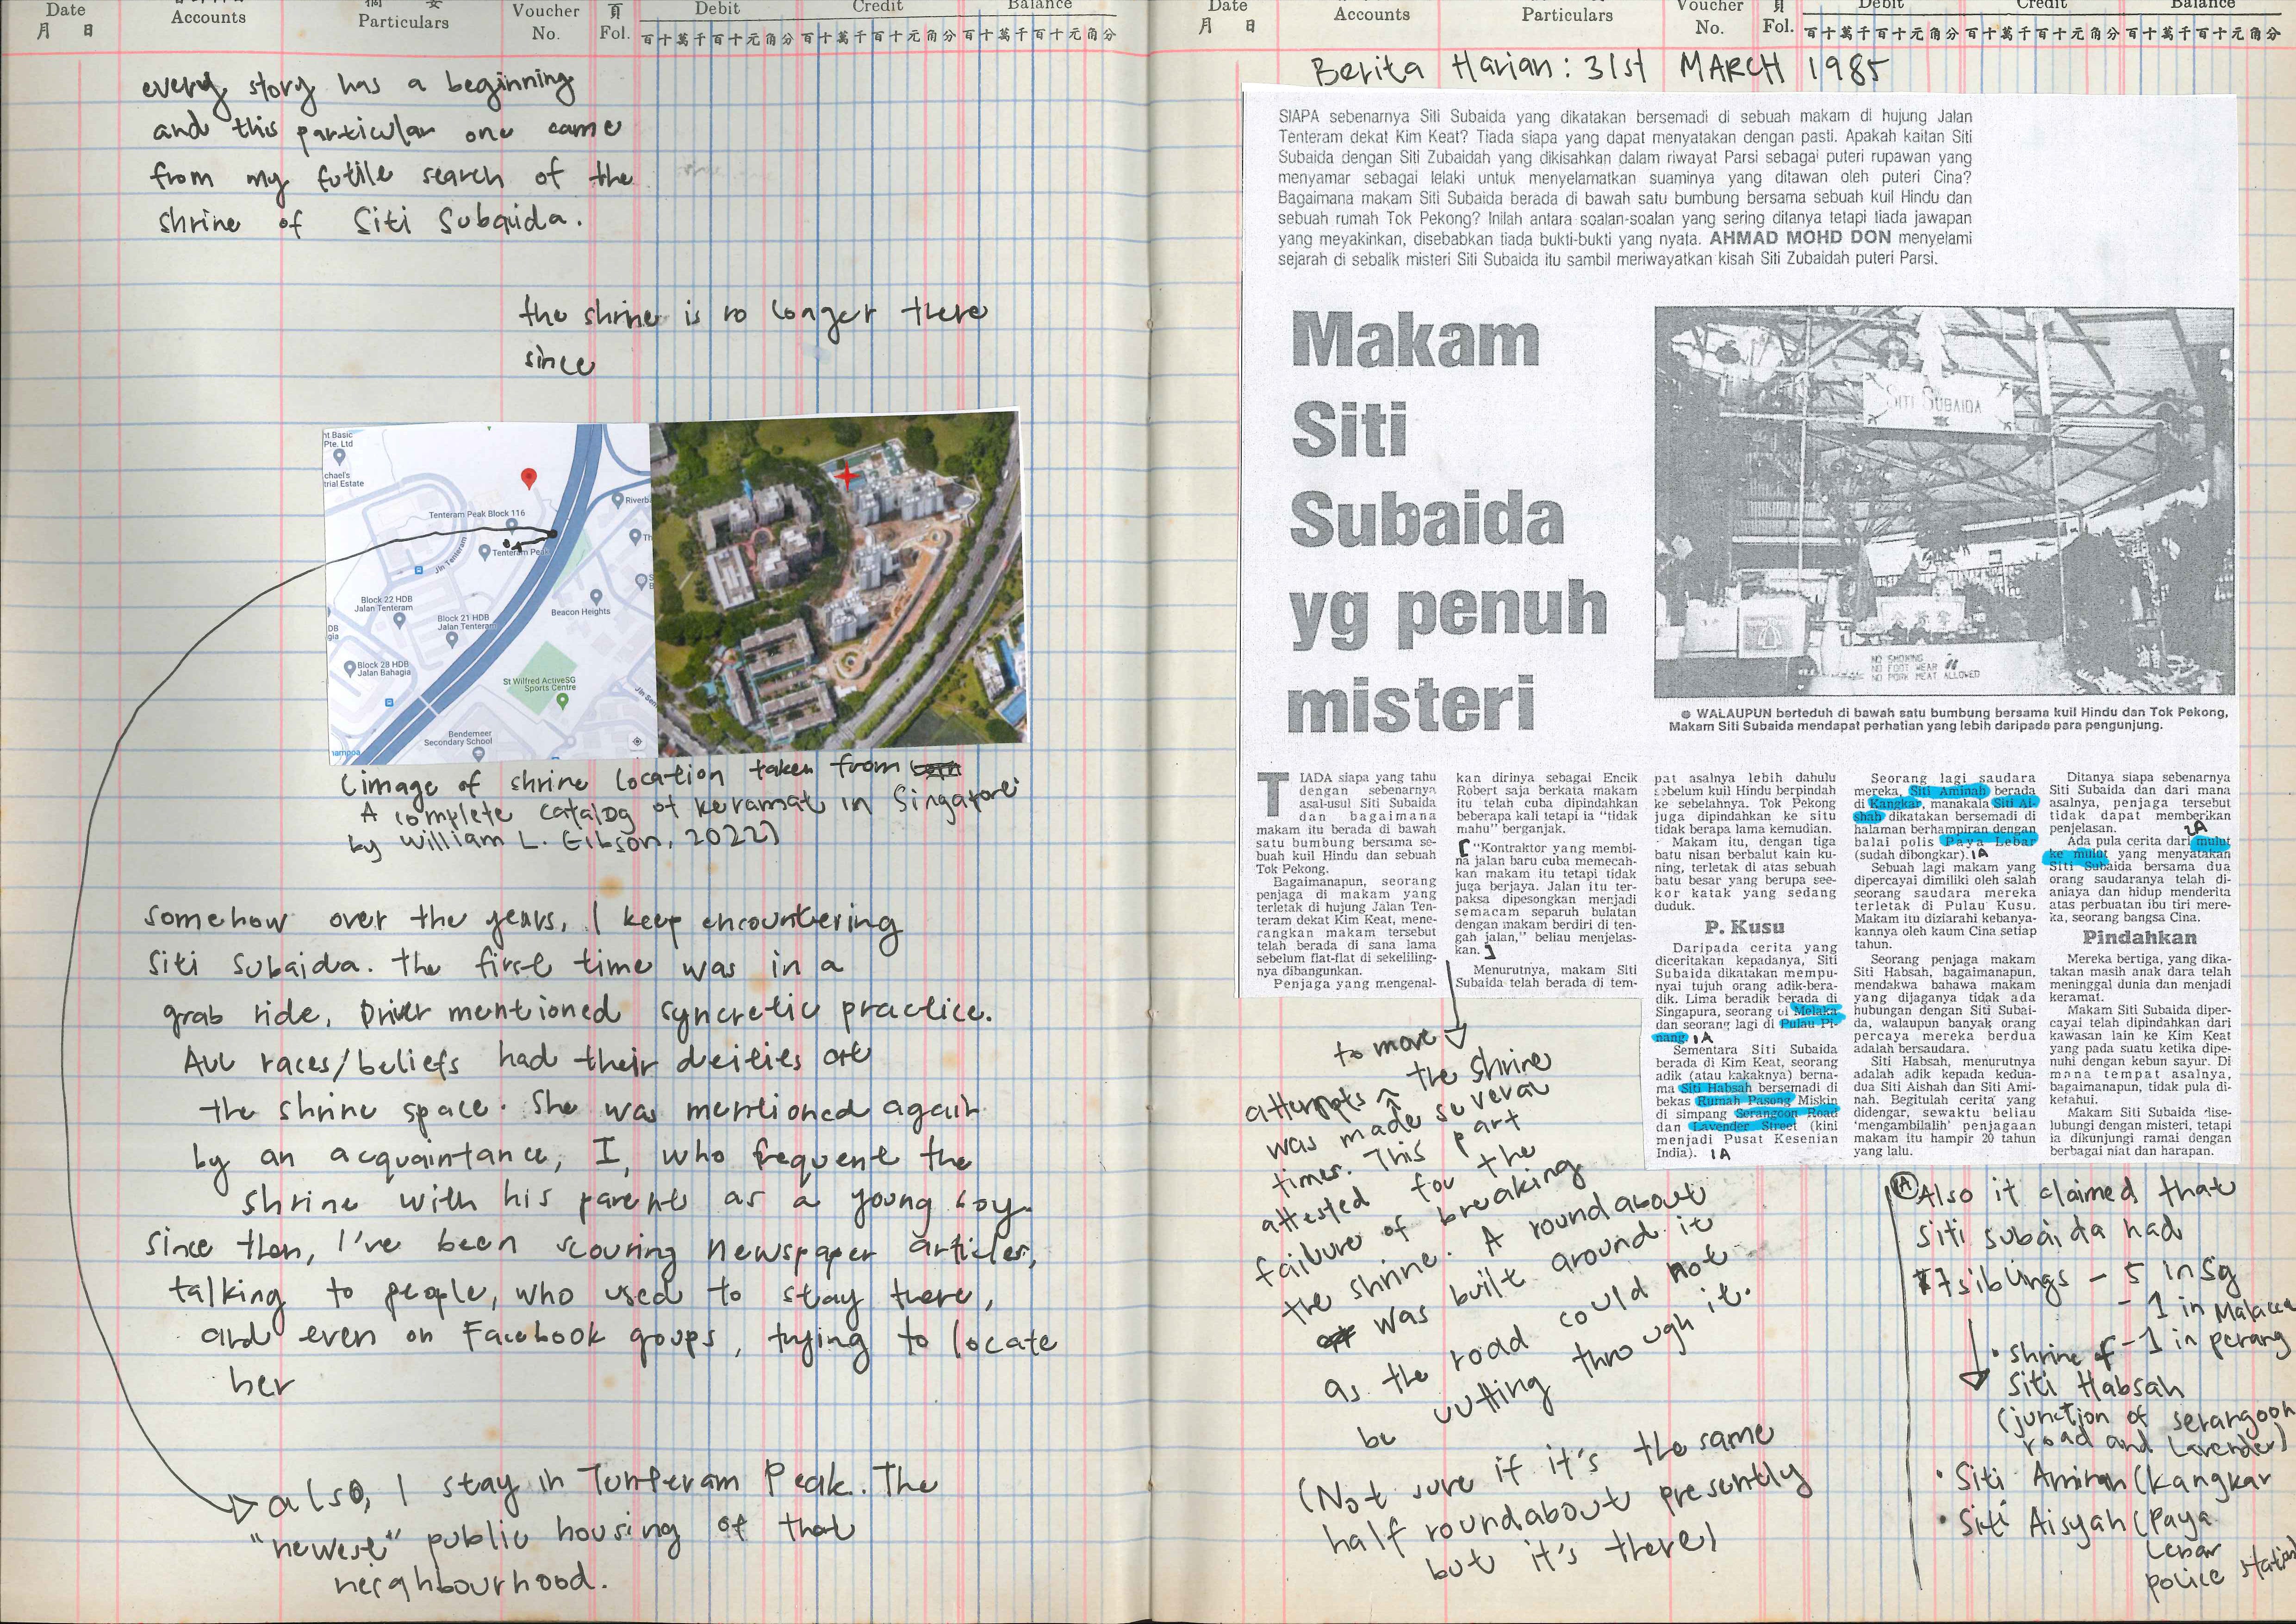 Date
月 日
Accounts
Particulars
Voucher
No.
頁
Fol.
Debit
Credit
Balance
百十萬千百十元角分百十萬千百十元角分百十萬千百十元角分
every story has a beginning
and this particular one came
from my futile search of the
shrine of Siti Subaida.
the shrine is no longer there
since
nt Basic
Pte. Ltd
chael's
trial Estate
Tenteram Peak Block 116
Riverb
Tenteram Peak
Jln Tenteram
Block 22 HDB
Jalan Tenteram
Beacon Heights
Block 21 HDB
Jalan Tenteram
DB
gia
Block 28 HDB
Jalan Bahagia
St Wilfred ActiveSG
Sports Centre
Bendemeer
Secondary School
hampoa
(image of shrine location taken from
A complete catalog of keramat in Singapore
by William L. Gibson, 2022)
somehow over the years, I keep encountering
Siti Subaida. The first time was in a
grab ride, Driver mentioned syncretic practice.
All races/beliefs had their deities at
the shrine space. She was mentioned again
by an acquaintance, I, who frequent the
shrine with his parents as a young boy.
since then, I've been scouring newspaper articles,
talking to people, who used to stay there,
and even on Facebook goups, trying to locate
her
also, I stay in Tenteram Peak. The
"newest" public housing of that
neighbourhood.
Date
月 日
Accounts
Particulars
Voucher
No.
頁
Fol.
Debit
Credit
Balance
百十萬千百十元角分百十萬千百十元角分百十萬千百十元角分
Berita Harian: 31st MARCH 1985
SIAPA sebenarnya Siti Subaida yang dikatakan bersemadi di sebuah makam di hujung Jalan
Tenteram dekat Kim Keat? Tiada siapa yang dapat menyatakan dengan pasti. Apakah kaitan Siti
Subaida dengan Siti Zubaidah yang dikisahkan dalam riwayat Parsi sebagai puteri rupawan yang
menyamar sebagai lelaki untuk menyelamatkan suaminya yang ditawan oleh puteri Cina?
Bagaimana makam Siti Subaida berada di bawah satu bumbung bersama sebuah kuil Hindu dan
sebuah rumah Tok Pekong? Inilah antara soalan-soalan yang sering ditanya tetapi tiada jawapan
yang meyakinkan, disebabkan tiada bukti-bukti yang nyata. AHMAD MOHD DON menyelami
sejarah di sebalik misteri Siti Subaida itu sambil meriwayatkan kisah Siti Zubaidah puteri Parsi.
Makam
Siti
Subaida
yg penuh
misteri
SITI SUBAIDA
NO SMOKING
NO FOOT WEAR
NO PORK MEAT ALLOWED
● WALAUPUN berteduh di bawah satu bumbung bersama kuil Hindu dan Tok Pekong,
Makam Siti Subaida mendapat perhatian yang lebih daripada para pengunjung.
TIADA siapa yang tahu
dengan sebenarnya
asal-usul Siti Subaida
dan bagaimana
makam itu berada di bawah
satu bumbung bersama se-
buah kuil Hindu dan sebuah
Tok Pekong.
Bagaimanapun, seorang
penjaga di makam yang
terletak di hujung Jalan Ten-
teram dekat Kim Keat, mene-
rangkan makam tersebut
telah berada di sana lama
sebelum flat-flat di sekeliling-
nya dibangunkan.
Penjaga yang mengenal-
kan dirinya sebagai Encik
Robert saja berkata makam
itu telah cuba dipindahkan
beberapa kali tetapi ia "tidak
mahu" berganjak.
["Kontraktor yang membi-
na jalan baru cuba memecah-
kan makam itu tetapi tidak
juga berjaya. Jalan itu ter-
paksa dipesongkan menjadi
semacam separuh bulatan
dengan makam berdiri di ten-
gah jalan," beliau menjelas-
kan.]
Menurutnya, makam Siti
Subaida telah berada di tem-
pat asalnya lebih dahulu
sebelum kuil Hindu berpindah
ke sebelahnya. Tok Pekong
juga dipindahkan ke situ
tidak berapa lama kemudian.
Makam itu, dengan tiga
batu nisan berbalut kain ku-
ning, terletak di atas sebuah
batu besar yang berupa see-
kor katak yang sedang
duduk.
P. Kusu
Daripada cerita yang
diceritakan kepadanya, Siti
Subaida dikatakan mempu-
nyai tujuh orang adik-bera-
dik. Lima beradik berada di
Singapura, seorang di Melaka
dan seorang lagi di Pulau Pi-
nang. 1A
Sementara Siti Subaida
berada di Kim Keat, seorang
adik (atau kakaknya) berna-
ma Siti Habsah bersemadi di
bekas Rumah Pasong Miskin
di simpang Serangoon Road
dan Lavender Street (kini
menjadi Pusat Kesenian
India). 1A
Seorang lagi saudara
mereka, Siti Aminah berada
di Kangkar, manakala Siti Ai-
shah dikatakan bersemadi di
halaman berhampiran dengan
balai polis Paya Lebar
(sudah dibongkar). 1A
Sebuah lagi makam yang
dipercayai dimiliki oleh salah
seorang saudara mereka
terletak di Pulau Kusu.
Makam itu diziarahi kebanya-
kannya oleh kaum Cina setiap
tahun.
Seorang penjaga makam
Siti Habsah, bagaimanapun,
mendakwa bahawa makam
yang dijaganya tidak ada
hubungan dengan Siti Subai-
da, walaupun banyak orang
percaya mereka berdua
adalah bersaudara.
Siti Habsah, menurutnya
adalah adik kepada kedua-
dua Siti Aishah dan Siti Ami-
nah. Begitulah cerita yang
didengar, sewaktu beliau
'mengambilalih' penjagaan
makam itu hampir 20 tahun
yang lalu.
Ditanya siapa sebenarnya
Siti Subaida dan dari mana
asalnya, penjaga tersebut
tidak dapat memberikan
penjelasan.
2A
Ada pula cerita dari mulut
ke mulut yang menyatakan
Siti Subaida bersama dua
orang saudaranya telah di-
aniaya dan hidup menderita
atas perbuatan ibu tiri mere-
ka, seorang bangsa Cina.
Pindahkan
Mereka bertiga, yang dika-
takan masih anak dara telah
meninggal dunia dan menjadi
keramat.
Makam Siti Subaida diper-
cayai telah dipindahkan dari
kawasan lain ke Kim Keat
yang pada suatu ketika dipe-
nuhi dengan kebun sayur. Di
mana tempat asalnya,
bagaimanapun, tidak pula di-
ketahui.
Makam Siti Subaida dise-
lubungi dengan misteri, tetapi
ia dikunjungi ramai dengan
berbagai niat dan harapan.
to move
attempts ^ the shrine
was made several
times. This part
attested for the
failure of breaking
the shrine. A roundabout
was built around it
as the road could not
be cutting through it.
(Not sure if it's the same
half roundabout presently
but it's there)
1A Also it claimed that
Siti subaida had
7 siblings - 5 in Sg
- 1 in Malacca
- 1 in penang
• Shrine of
Siti Habsah
(junction of serangoon
road and Lavender)
• Siti Aminah (kangkar
• Siti Aisyah (Paya
Lebar
police station)